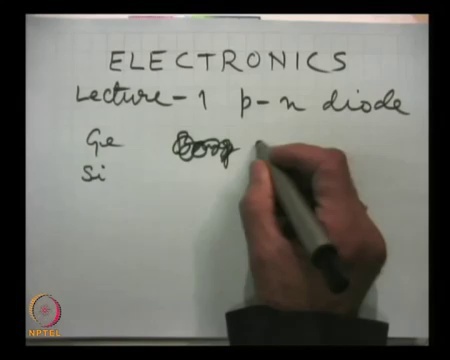 ELECTRONICS
Lecture-1 p-n diode
Ge
Si
NPTEL